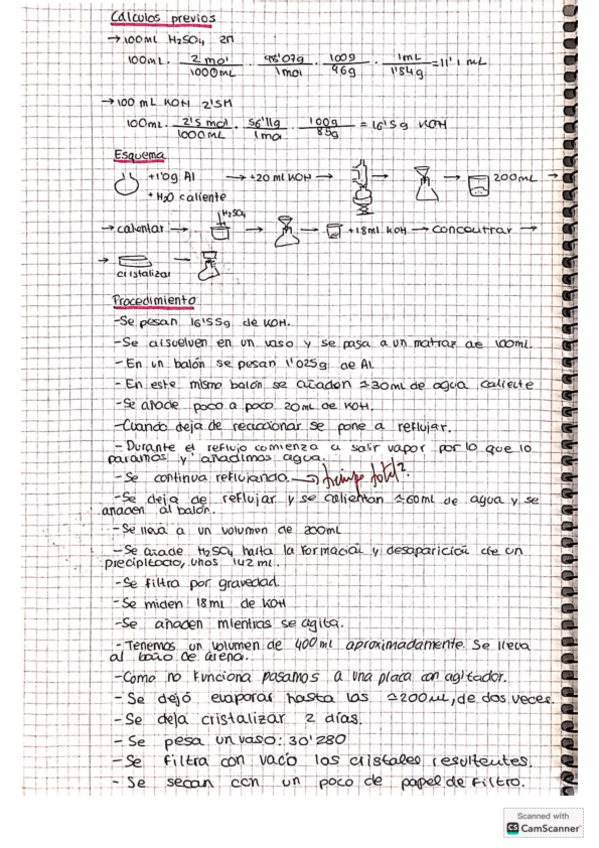 Cálculos previos
→ 100mL H₂SO₄ 2M
100mL · 2 mol / 1000mL · 98'07g / 1mol · 100g / 96g · 1mL / 1'84g = 11'1 mL
→ 100 mL KOH 2'5M
100mL · 2'5 mol / 1000mL · 56'11g / 1mol · 100g / 85g = 16'5g KOH
Esquema
+1'0g Al → +20 ml KOH → → → 200mL →
+ H₂O caliente
H₂SO₄
→ calentar → → → +18ml KOH → concentrar →
→ →
cristalizar
Procedimiento
-Se pesan 16'55g de KOH.
-Se disuelven en un vaso y se pasa a un matraz de 100ml.
-En un balón se pesan 1'025g de Al
-En este mismo balón se añaden ≃30ml de agua caliente
-Se añade poco a poco 20ml de KOH.
-Cuando deja de reaccionar se pone a reflujar.
-Durante el reflujo comienza a salir vapor por lo que lo
paramos y añadimos agua.
-Se continua reflujando. → tiempo total?
-Se deja de reflujar y se calientan ≃60ml de agua y se
añaden al balón.
-Se lleva a un volumen de 200ml
-Se añade H₂SO₄ hasta la formación y desaparición de un
precipitado, unos 142 ml.
-Se filtra por gravedad.
-Se miden 18ml de KOH
-Se añaden mientras se agita.
-Tenemos un volumen de 400ml aproximadamente. Se lleva
al baño de arena.
-Como no funciona pasamos a una placa con agitador.
-Se dejó evaporar hasta las ≃200mL, de dos veces.
-Se deja cristalizar 2 días.
-Se pesa un vaso: 30'280
-Se filtra con vacío los cristales resultentes.
-Se secan con un poco de papel de filtro.
Scanned with
CS CamScanner